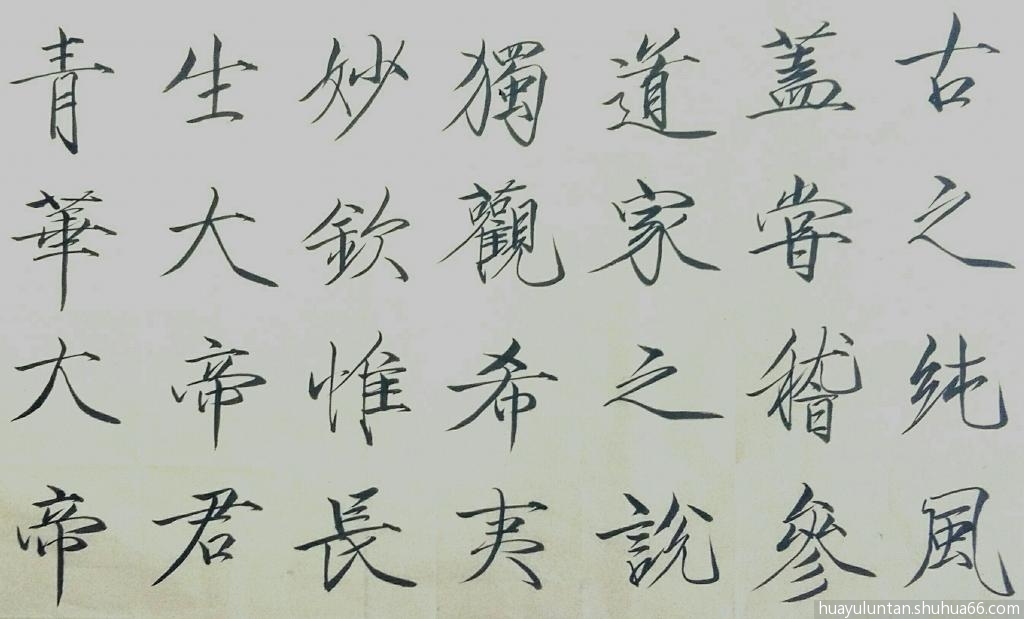 古之純風
蓋嘗稽參
道家之說
獨觀希夷
妙欽惟長
生大帝君
青華大帝
huayuluntan.shuhua66.com